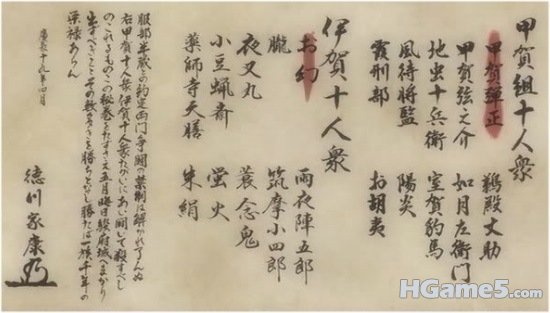 甲賀組十人衆
甲賀彈正 鵜殿丈助
甲賀弦之介 如月左衛門
地虫十兵衛 室賀豹馬
風待將監 陽炎
霞刑部 お胡夷
伊賀十人衆
お幻 雨夜陣五郎
朧 筑摩小四郎
夜叉丸 蓑念鬼
小豆蝋斎 螢火
薬師寺天膳 朱絹
服部半蔵との約定両門争闘の禁制は解かれ了んぬ
右甲賀十人衆伊賀十人衆たがいにあい闘して殺すべし
のこれるものこの秘巻をたずさえ五月晦日駿府城へまかり
出ずべきことその数多きを勝ちとなし勝たば一族千年の
栄禄あらん
慶長十九年四月
徳川家康
HGame5.com